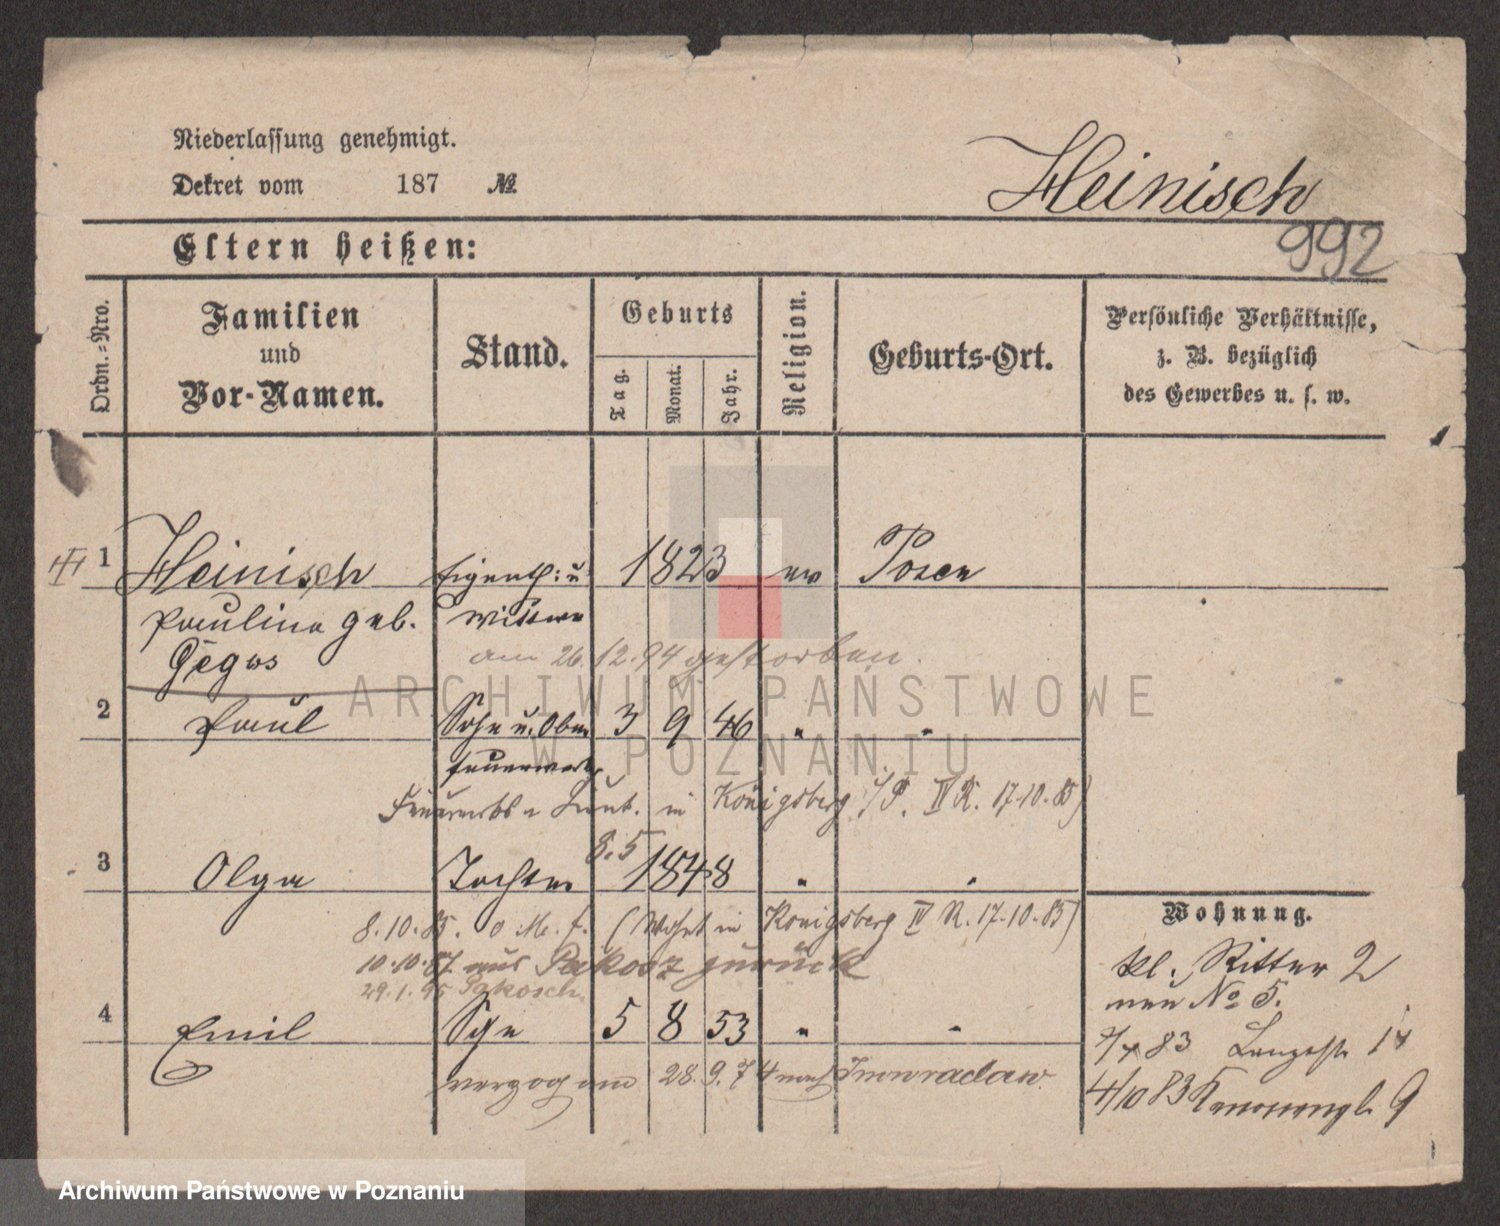 Niederlassung genehmigt.
Dekret vom 187 №
Heinisch
992
Eltern heißen:
Ordn.-Nro.
Familien
und
Vor-Namen.
Stand.
Geburts
Tag.
Monat.
Jahr.
Religion.
Geburts-Ort.
Persönliche Verhältnisse,
z. B. bezüglich
des Gewerbes u. s. w.
1 Heinisch Eigenth: u 1823 ev Posen
Pauline geb. Wittwe
am 26.12.94 gestorben.
2 Paul Sohn u. Ober 3 9 46 " "
feuerwerker
Feuerwks Lieut. in Königsberg i/P. IV R. 17.10.85)
8.5
3 Olga Tochter 1848 " "
8.10.85. o M. f. (Wohnt in Königsberg IV R. 17.10.85)
10.10.87 aus Pakosz zurück
29.1.95 Pakosch.
4 Emil Sohn 5 8 53 " "
verzog am 28.9.74 nach Inowraclaw.
Wohnung.
kl. Ritter 2
neu No 5.
83 Langestr 14
4/10 83 9
ARCHIWUM PAŃSTWOWE
W POZNANIU
Archiwum Państwowe w Poznaniu